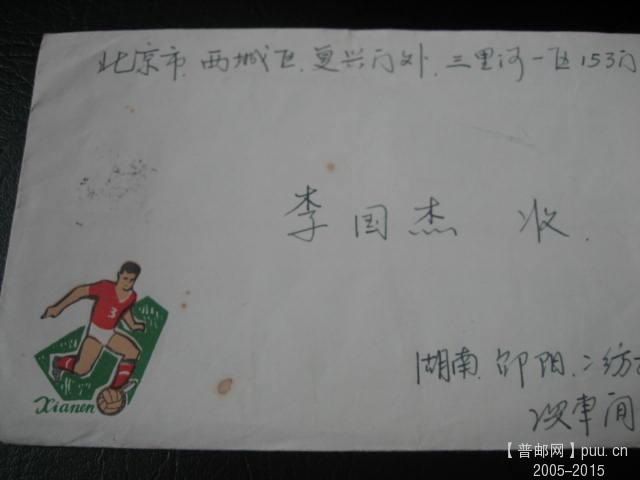 北京市.西城区.复兴门外.三里河一区153门
李国杰 收.
3
湖南.邵阳.二纺
车间
Xianen
【普邮网】puu.cn
2005-2015